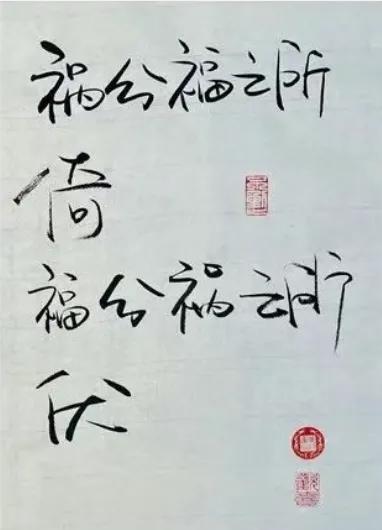 祸兮福之所
倚
福兮祸之所
伏